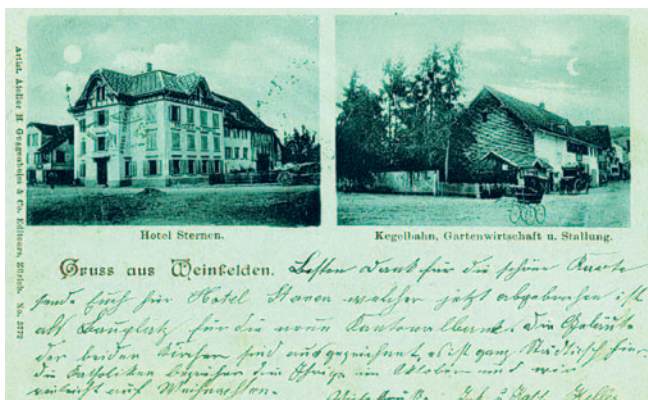 Artist. Atelier H. Guggenheim & Co. Editeurs, Zürich. No. 3772
Hotel Sternen.
Kegelbahn, Gartenwirtschaft u. Stallung.
Gruss aus Weinfelden. Besten Dank für die schöne Karte
sende Euch hier Hotel Sternen welcher jetzt abgebrochen ist
als Bauplatz für die neue Kantonalbank. Die Geläute
der beiden Kirchen sind ausgezeichnet, es ist ganz Städtisch hier.
die Katholiken im Oktober und wir
vielleicht auf Weihnachten.